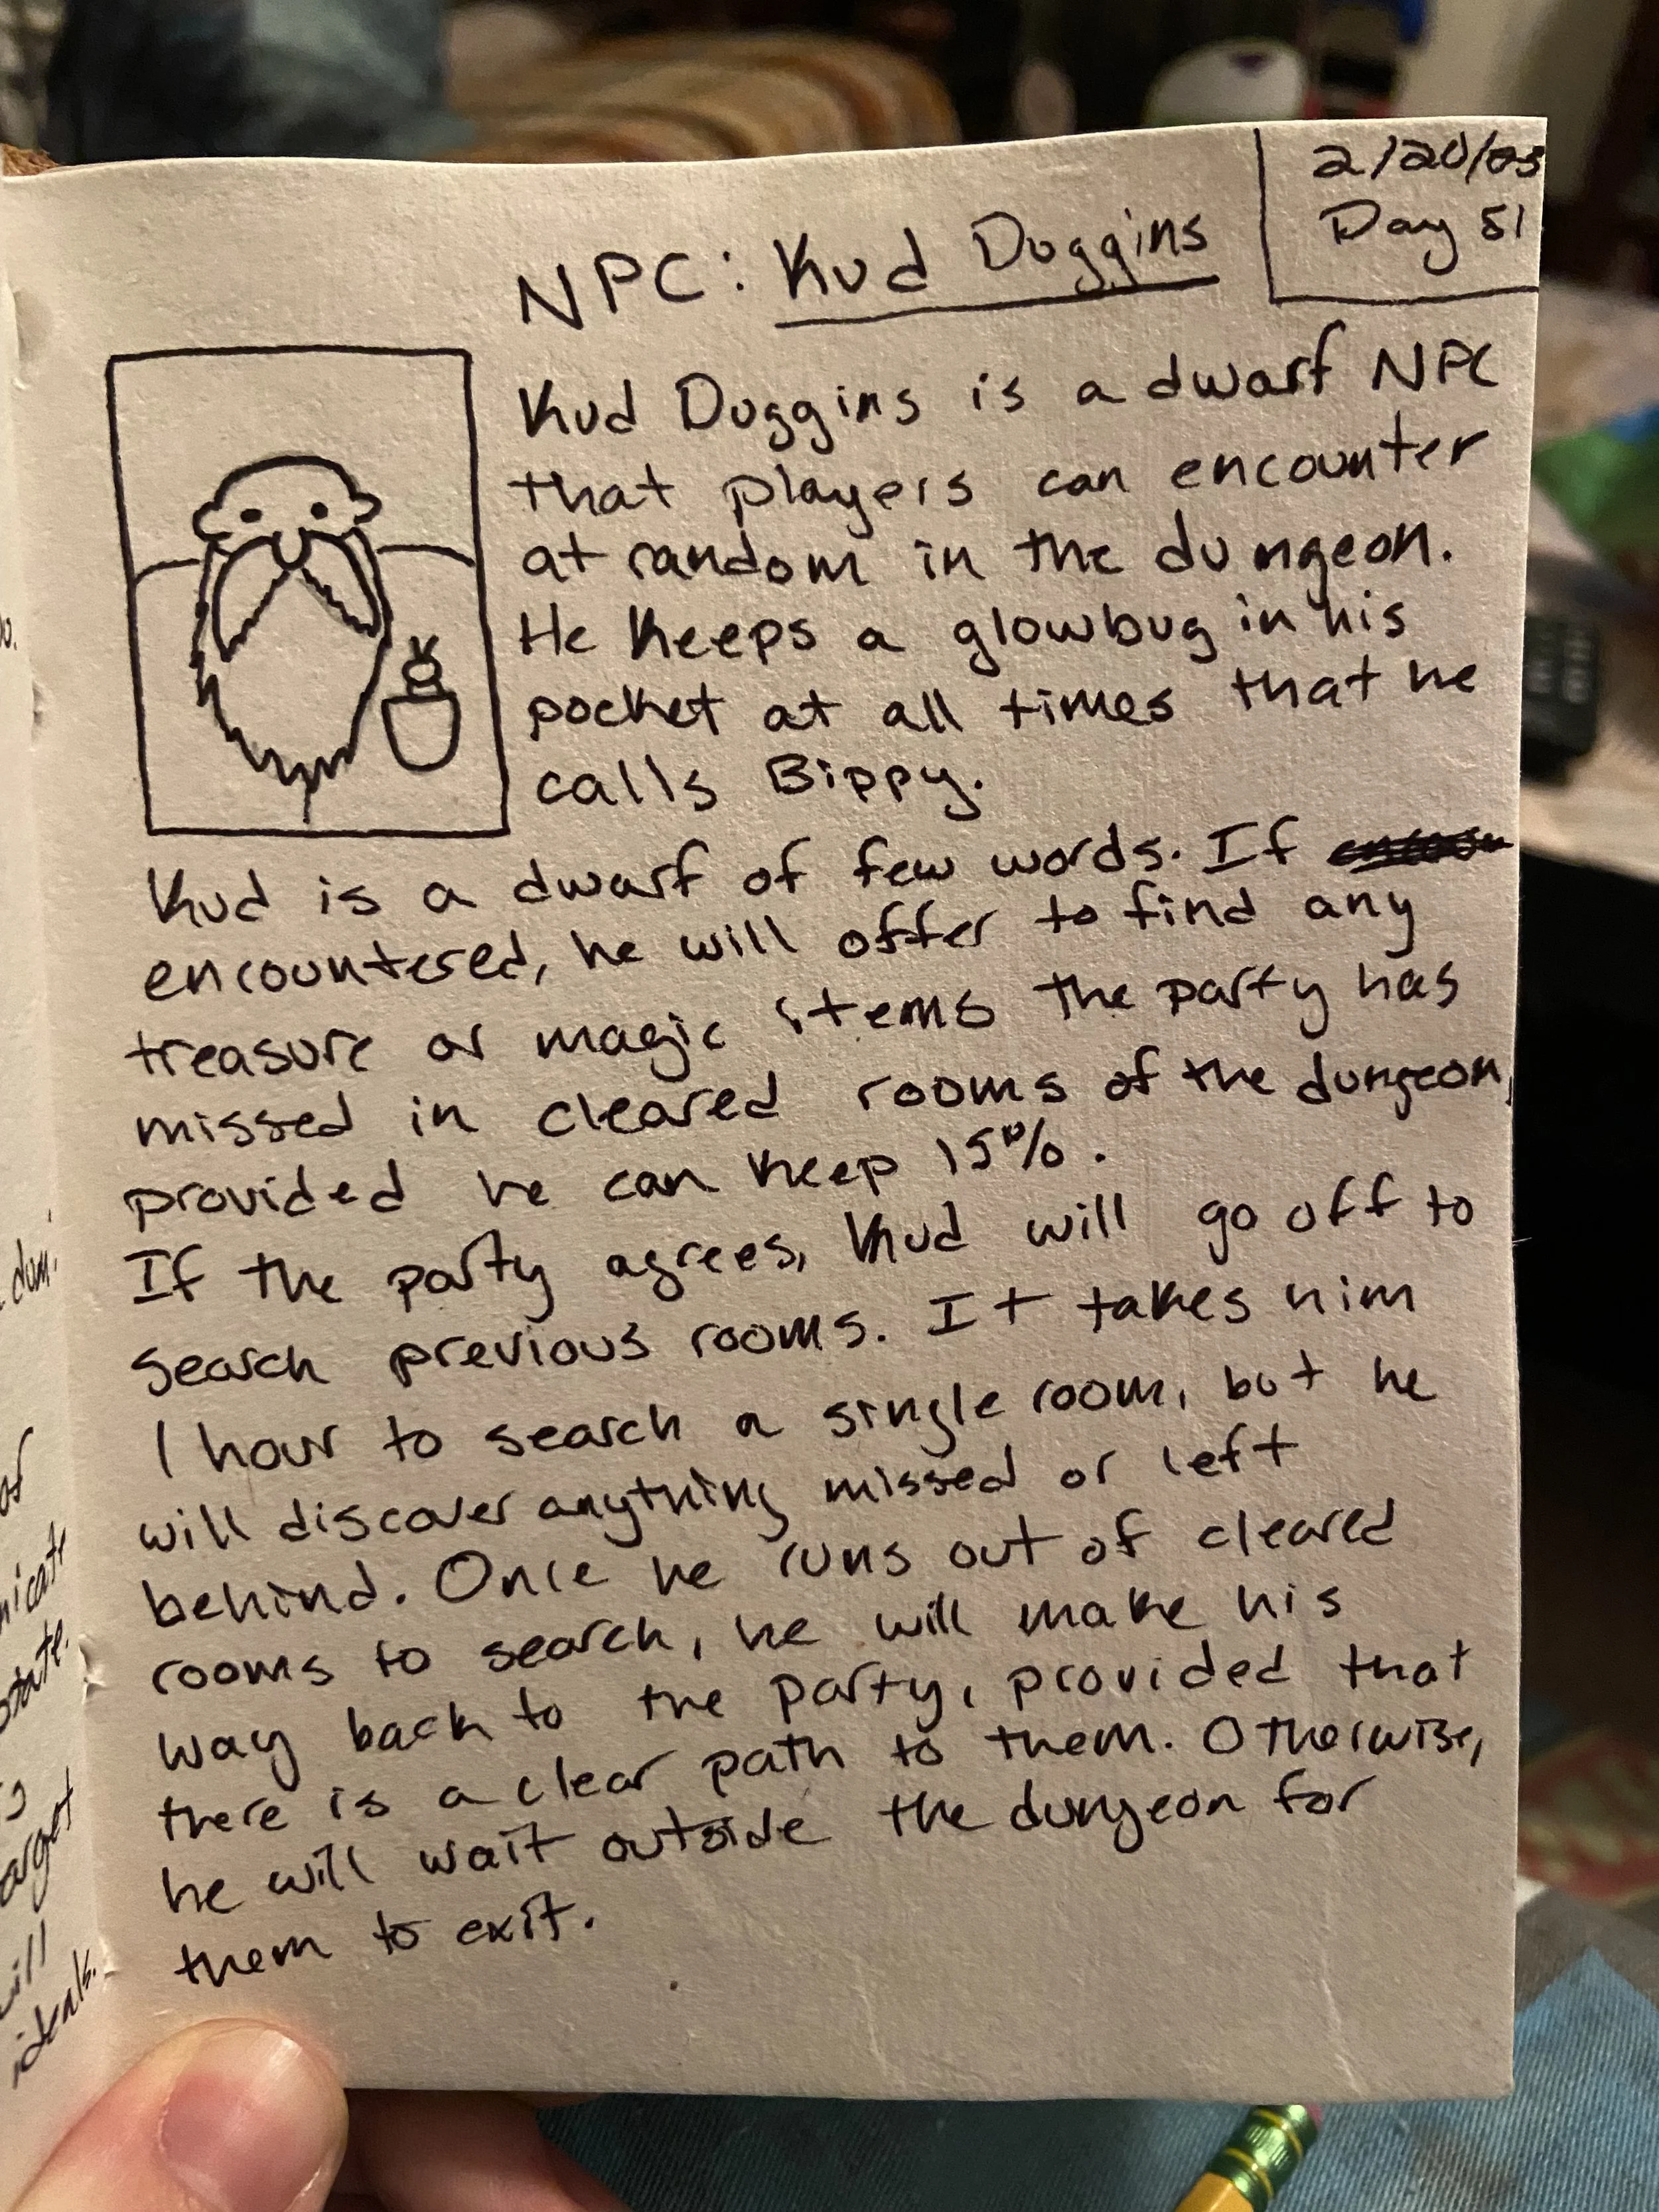 2/20/03
Day 51
NPC: Kud Duggins
Kud Duggins is a dwarf NPC
that players can encounter
at random in the dungeon.
He keeps a glowbug in his
pocket at all times that he
calls Bippy.
Kud is a dwarf of few words. If
encountered, he will offer to find any
treasure or magic items the party has
missed in cleared rooms of the dungeon,
provided he can keep 15%.
If the party agrees, Kud will go off to
search previous rooms. It takes him
1 hour to search a single room, but he
will discover anything missed or left
behind. Once he runs out of cleared
rooms to search, he will make his
way back to the party, provided that
there is a clear path to them. Otherwise,
he will wait outside the dungeon for
them to exit.
ideals.